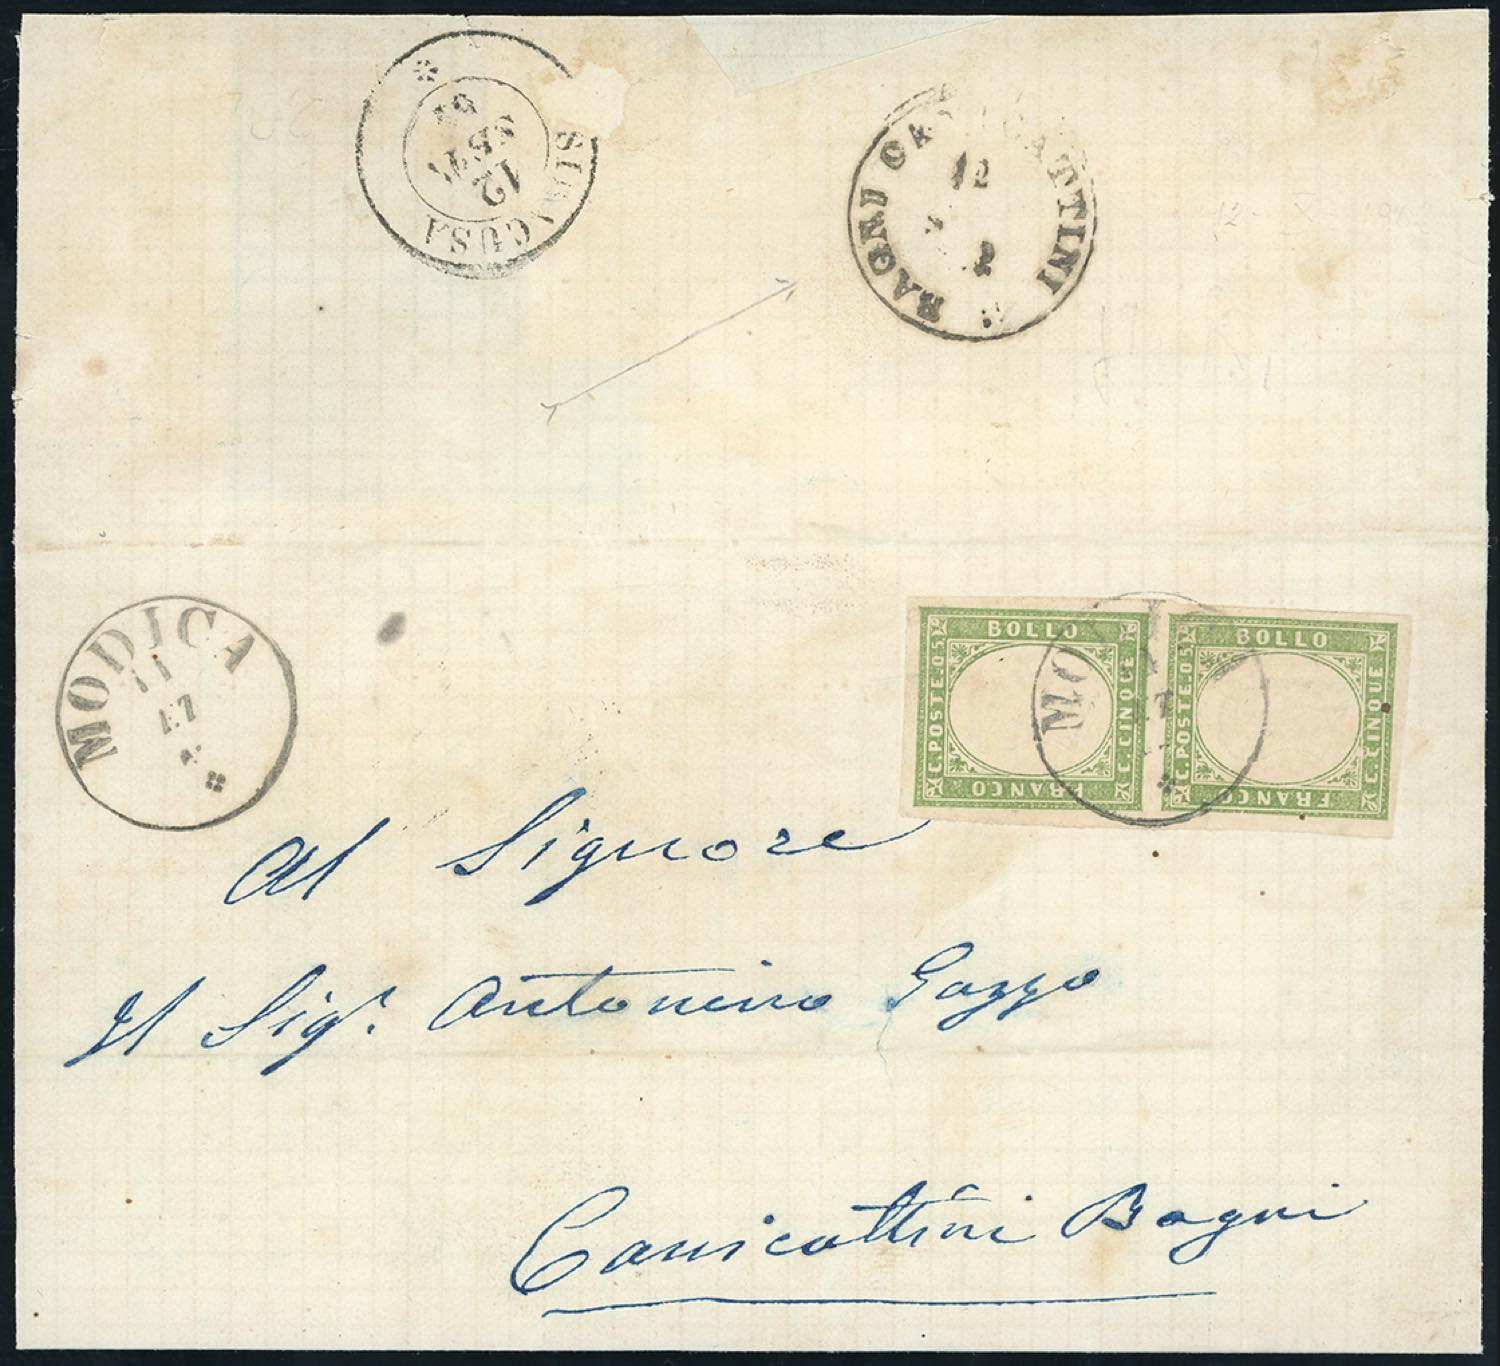 SIRACUSA
12
BAGNI CANICATTINI
12
MODICA
11
BOLLO
C. POSTE. 05
C. CINQUE
FRANCO
BOLLO
C. POSTE. 05
C. CINQUE
FRANCO
Al Signore
Il Sigr. Antonino Gozzo
Canicattini Bagni